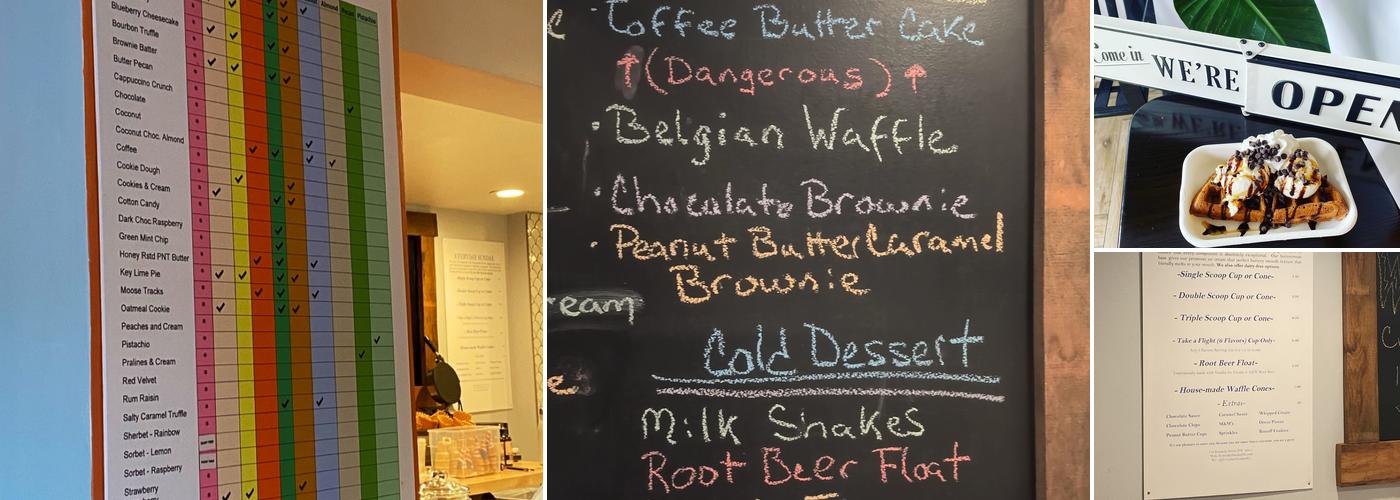 Almond
Pecan
Pistachio
Blueberry Cheesecake
Bourbon Truffle
Brownie Batter
Butter Pecan
Cappuccino Crunch
Chocolate
Coconut
Coconut Choc. Almond
Coffee
Cookie Dough
Cookies & Cream
Cotton Candy
Dark Choc.Raspberry
Green Mint Chip
Honey Rstd PNT Butter
Key Lime Pie
Moose Tracks
Oatmeal Cookie
Peaches and Cream
Pistachio
Pralines & Cream
Red Velvet
Rum Raisin
Salty Caramel Truffle
Sherbet - Rainbow
Sorbet - Lemon
Sorbet - Raspberry
Strawberry
Toffee Butter Cake
(Dangerous)
Belgian Waffle
Chocolate Brownie
Peanut Butter Caramel
Brownie
eam
Cold Dessert
Milk Shakes
Root Beer Float
Come in WE'RE OPEN
-Single Scoop Cup or Cone-
- Double Scoop Cup or Cone-
- Triple Scoop Cup or Cone-
- Take a Flight (6 Flavors) Cup Only-
- Root Beer Float-
- House-made Waffle Cones-
- Extras-
Chocolate Sauce Caramel Sauce Whipped Cream
Chocolate Chips M&M's Oreo Pieces
Peanut Butter Cups Sprinkles Biscoff Cookies